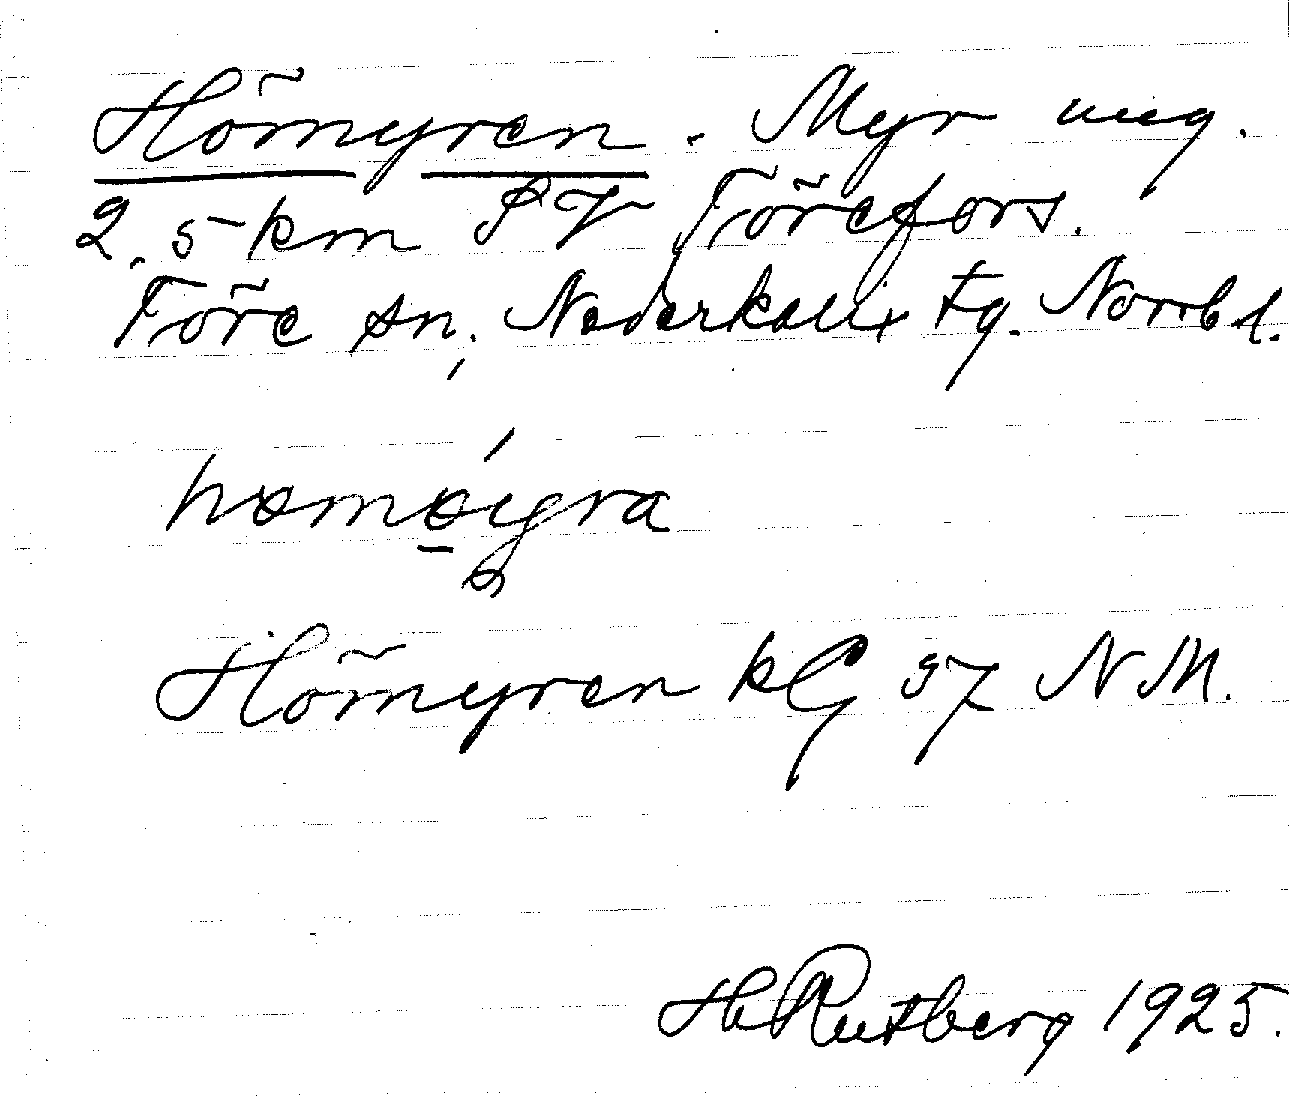 Hömyren. Myr ung.
2,5 km SV Törefors.
Töre sn, Nederkalix tg. Norrb l.
Hömyren kG 57 N M.
H Rutberg 1925.